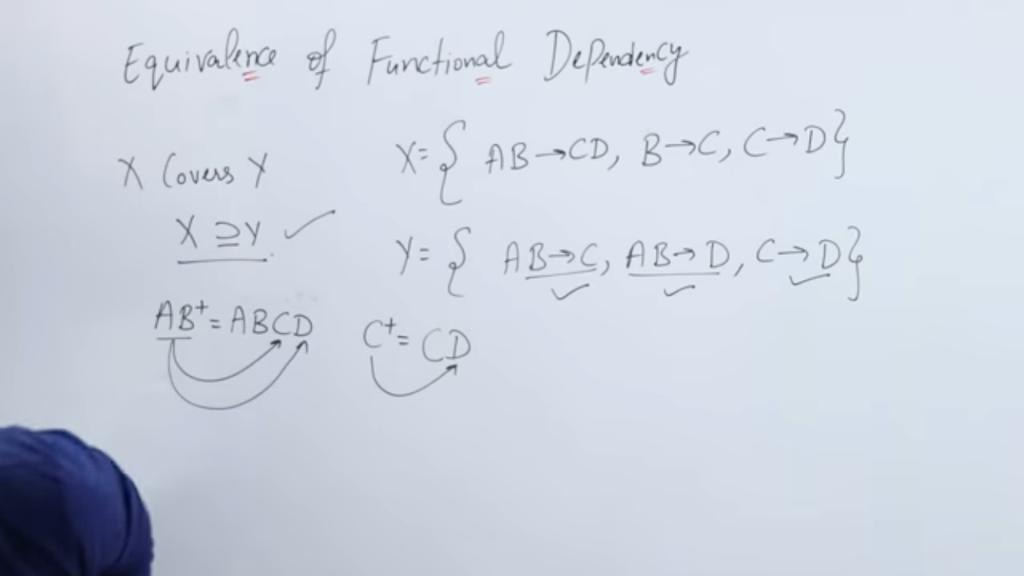 Equivalence of Functional Dependency
X Covers Y
X ⊇ Y ✓
X = { AB → CD, B → C, C → D }
Y = { AB → C, AB → D, C → D }
AB⁺ = ABCD
C⁺ = CD